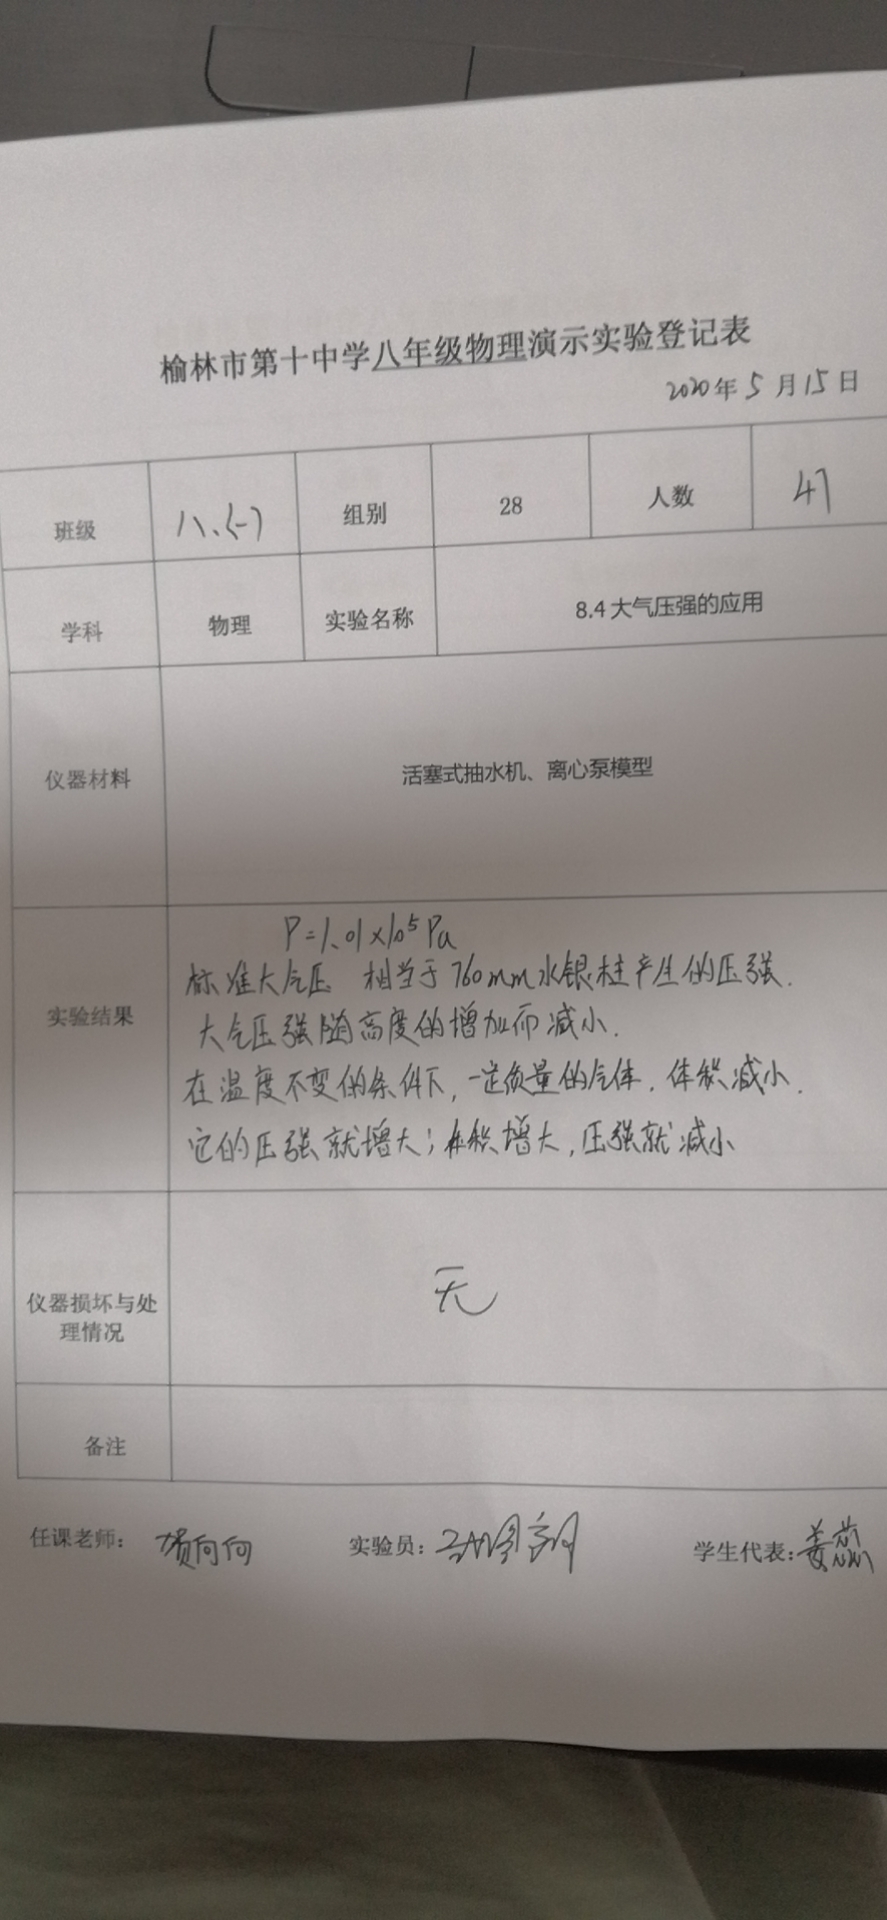 榆林市第十中学八年级物理演示实验登记表
2020年5月15日
班级 八.(一) 组别 28 人数 47
学科 物理 实验名称 8.4大气压强的应用
仪器材料 活塞式抽水机、离心泵模型
实验结果
P=1.01×10⁵Pa
标准大气压 相当于760mm水银柱产生的压强.
大气压强随高度的增加而减小.
在温度不变的条件下,一定质量的气体,体积减小.
它的压强就增大;体积增大,压强就减小
仪器损坏与处理情况 无
备注
任课老师: 贾向向 实验员: 学生代表: 姜蕊